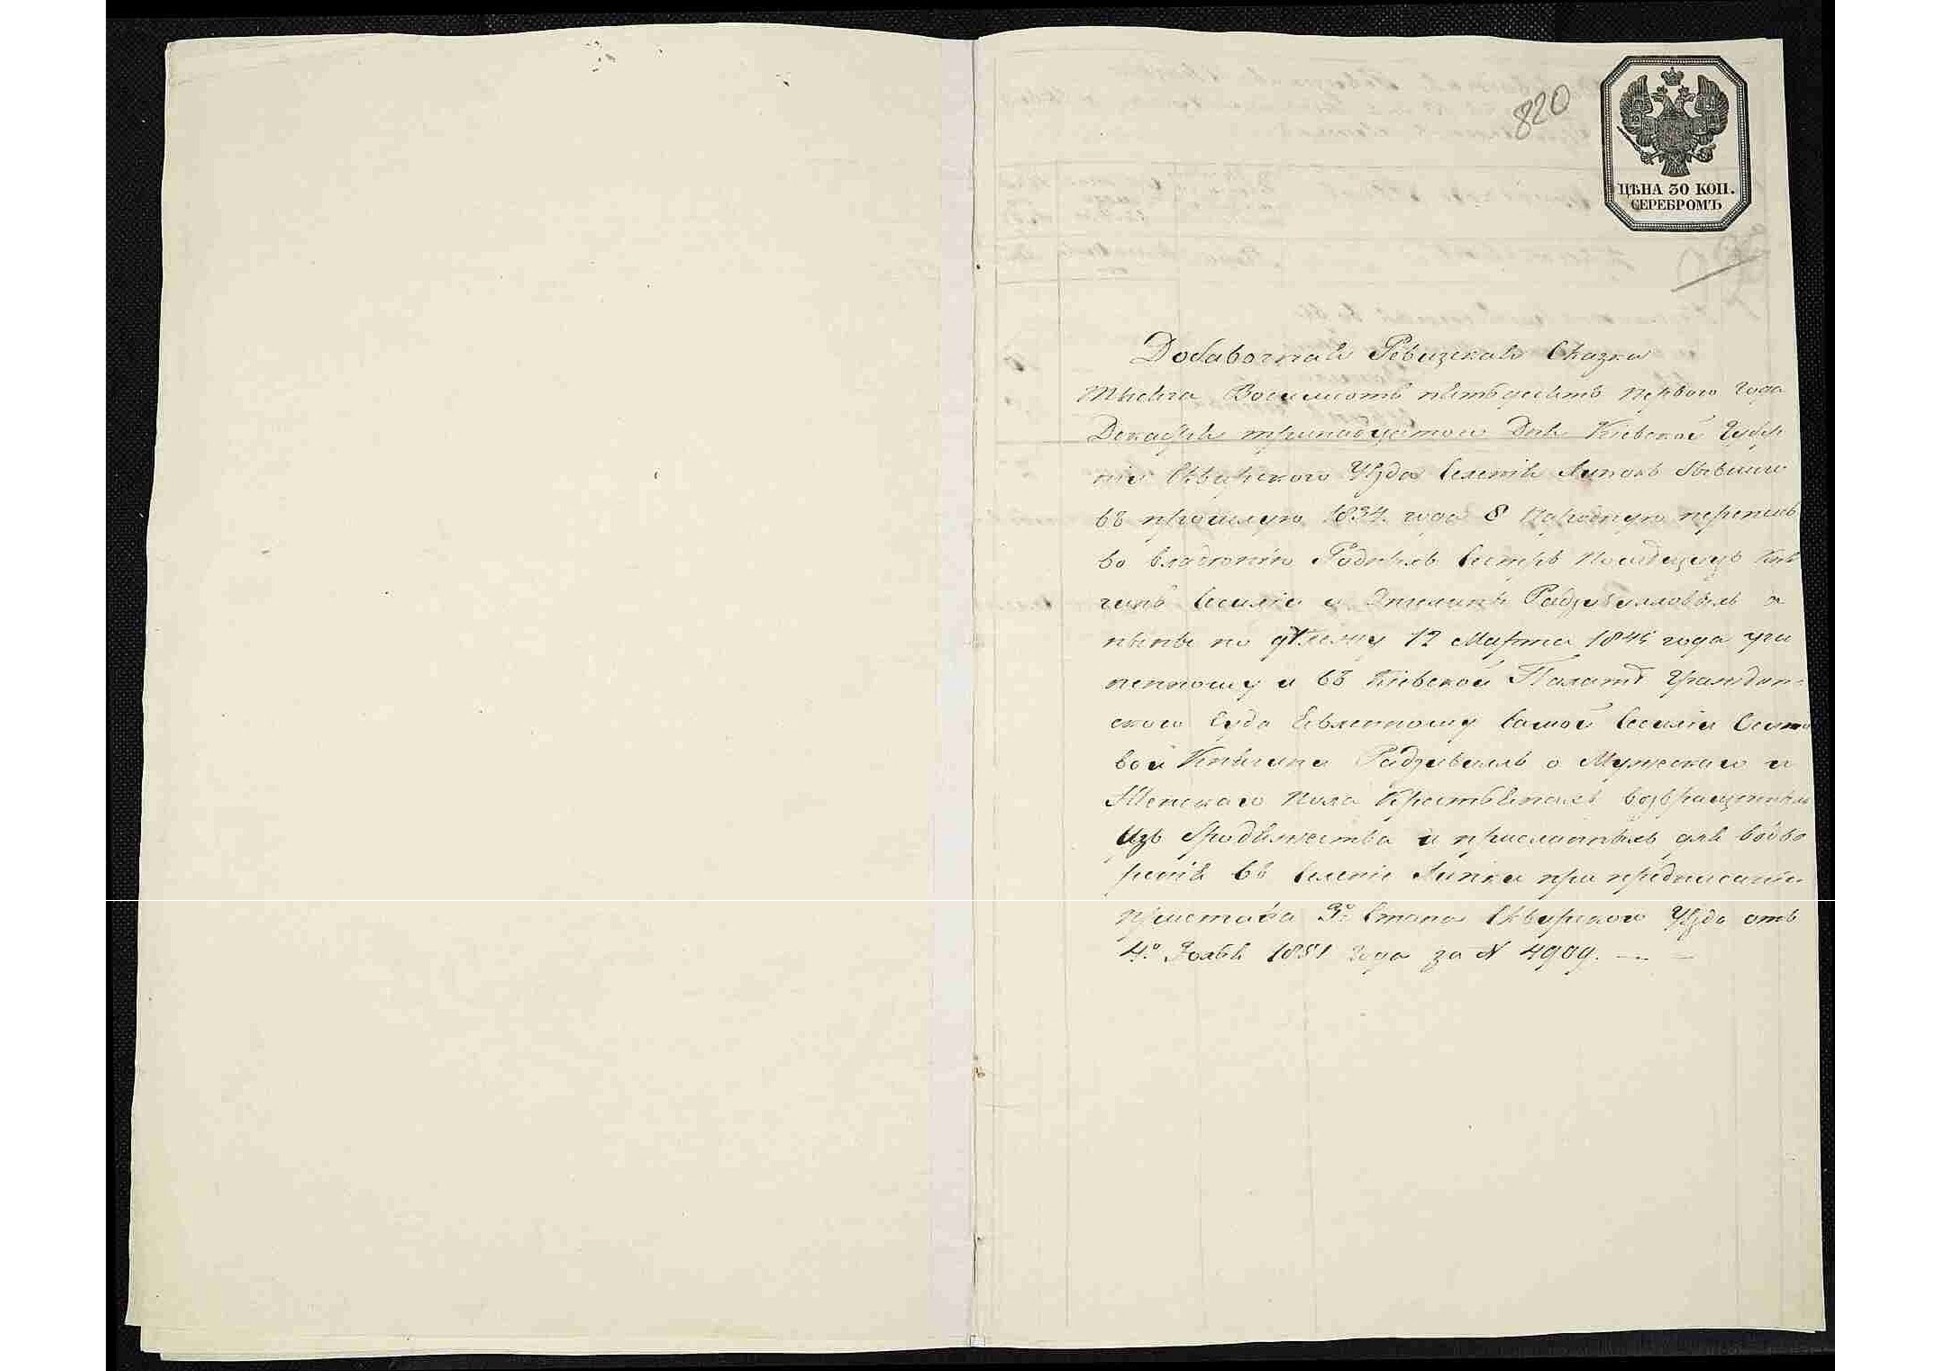 820
ЦѢНА 30 КОП.
СЕРЕБРОМЪ
Добавочная Ревизская Сказка
Тысяча Восемьсотъ пятьдесятъ перваго года
Декабря тринадцатого дня Кіевской Губер
ніи Сквирского Уѣзда Селенія Липокъ бывшаго
въ прошлую 1834 года 8 Народную перепись
во владѣніи Родныхъ Сестръ Помѣщицъ Кня
гинь и Радзивилловыхъ а
нынѣ по дѣлежу 12 Марта 1845 года учи
ненному и въ Кіевской Палатѣ Граждан-
ского Суда Явленному самой
вой Княгини Радзивилъ о Мужеского и
Женского пола Крестьянахъ возвращенныхъ
Изъ бродяжества и присланныхъ для водво
ренія въ Селеніе Липки при предписаніи
Пристава 3го Стана Сквирского Уѣзда отъ
4го 1851 года за № 4909.